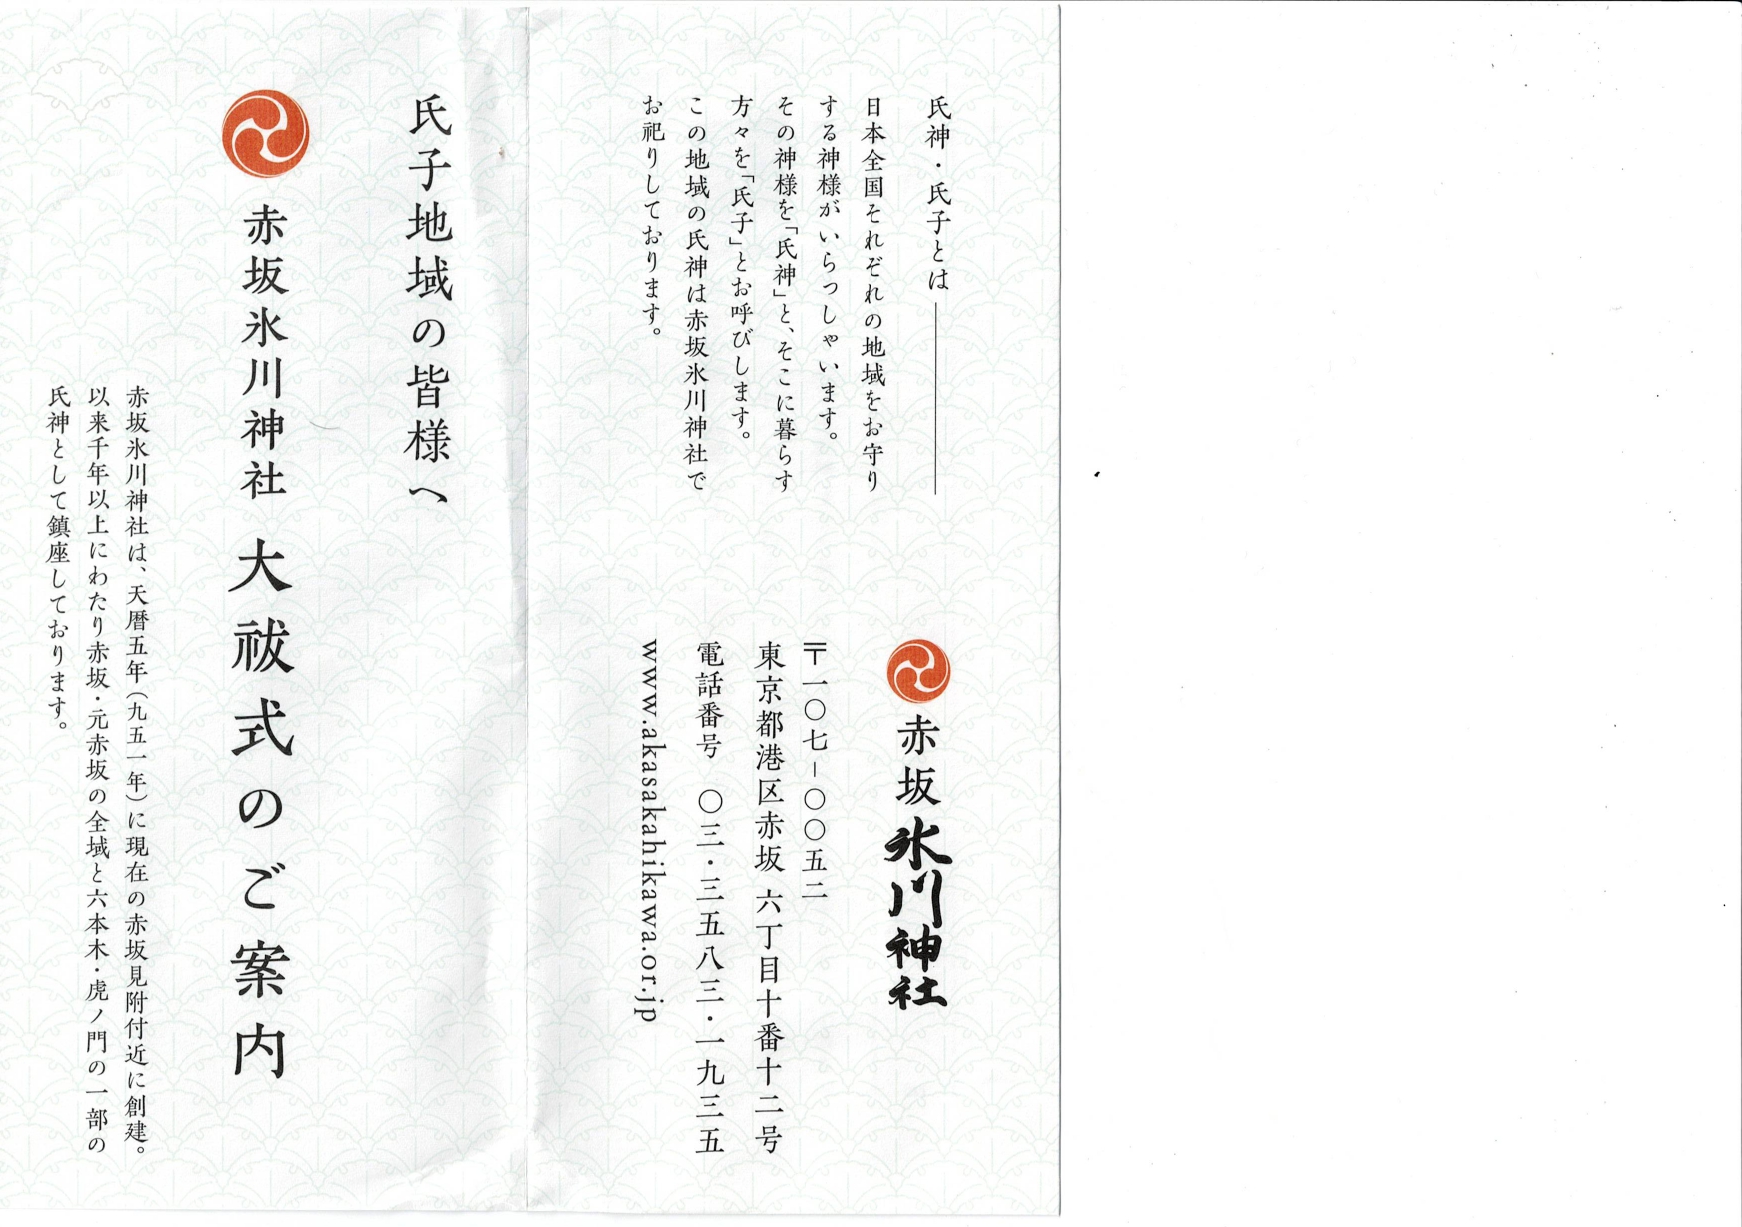 氏神・氏子とは
日本全国それぞれの地域をお守り
する神様がいらっしゃいます。
その神様を「氏神」と、そこに暮らす
方々を「氏子」とお呼びします。
この地域の氏神は赤坂氷川神社で
お祀りしております。
赤坂氷川神社
〒一〇七-〇〇五二
東京都港区赤坂 六丁目十番十二号
電話番号 〇三・三五八三・一九三五
www.akasakahikawa.or.jp
氏子地域の皆様へ
赤坂氷川神社 大祓式のご案内
赤坂氷川神社は、天暦五年(九五一年)に現在の赤坂見附付近に創建。
以来千年以上にわたり赤坂・元赤坂の全域と六本木・虎ノ門の一部の
氏神として鎮座しております。